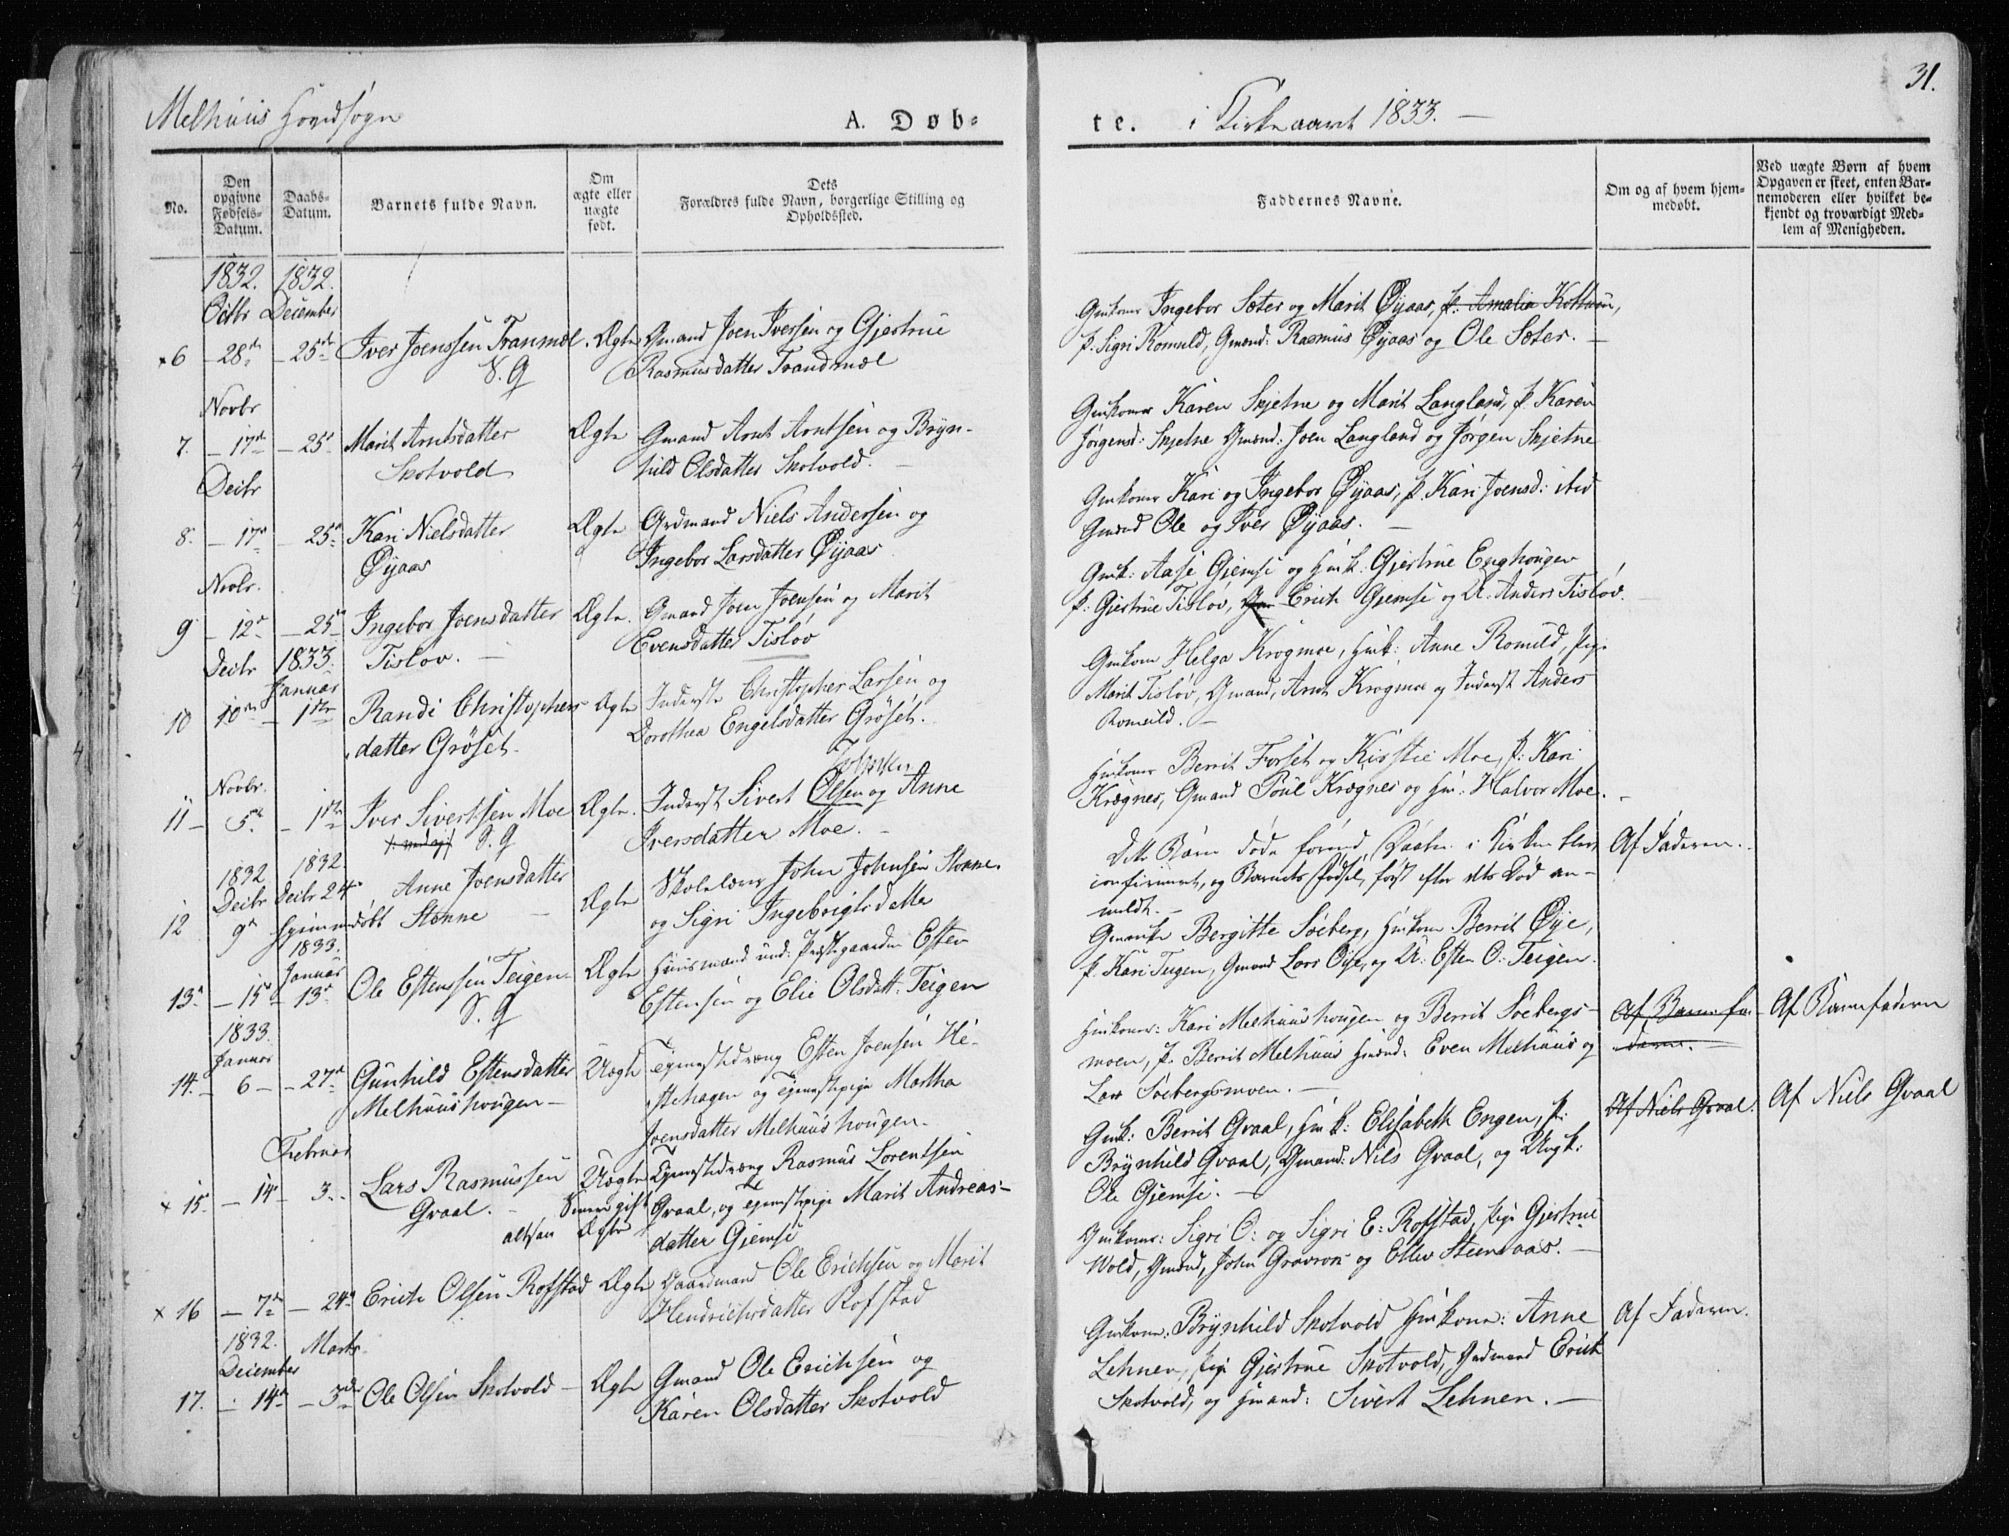 Melhuus Hovedsogn
A. Døb-
te.
i Kirkeaaret 1833.
31.
No.
Den opgivne Fødsels-Datum.
Daabs-Datum.
Barnets fulde Navn.
Om ægte eller uægte født.
Dets Forældres fulde Navn, borgerlige Stilling og Opholdssted.
Faddernes Navne.
Om og af hvem hjem-medøbt.
Ved uægte Børn af hvem Opgaven er skeet, enten Bar-nemoderen eller hvilket be-kjendt og troværdigt Med-lem af Menigheden.
1832. 1832.
Octbr December
×6 – 28de – 25de Iver Joenssen Tranmel. Ægte Gmand Joen Iversen og Gjertrue
Rasmusdatter Trandmæl
Gmkoner Ingebor Sæter og Marit Øyaas, P. Amalia Kottum,
P. Sigri Romuld, Gmænd: Rasmus Øyaas og Ole Sæter. –
Novbr
7. – 17de – 25de Marit Arntsdatter Ægte Gmand Arnt Arntsen og Bryn-
Skotvold
hild Olsdatter Skotvold. –
Gmkoner Karen Skjetne og Marit Langland, P. Karen
Jørgensd: Skjetne Gmænd: Joen Langland og Jørgen Skjetne
Decbr
8. – 17de – 25de Kari Nielsdatter Ægte Grdmand Niels Andersen og
Øyaas
Ingebor Larsdatter Øyaas
Gmkoner Kari og Ingebor Øyaas, P. Kari Joensd: ibid
Gmænd Ole og Iver Øyaas. –
Novbr.
9 – 12de – 25de Ingebor Joensdatter Ægte. Gmand Joen Joensen og Marit
Tisløv. –
Evensdatter Tisløv
Gmk: Aase Gjemse og Hmk: Gjertrue Enghougen
P: Gjertrue Tisløv, Erich Gjemse og U. Anders Tisløv.
Decbr 1833.
Januar
10 10de – 1ste Randi Christophers Ægte Inderste Christopher Larsen og
datter Grøset.
Dorothea Engelsdatter Grøset.
Gmkone Helga Krogmoe, Hmk: Anne Romuld, Pige
Marit Tisløv, Gmand, Arnt Krogmoe og Inderst Anders
Romuld. –
Novbr.
11 – 5te – 1ste Iver Sivertsen Moe Ægte. Inderst Sivert Olsen og Anne
Iversdatter Moe. –
Hmkoner Berrit Forset og Kirstie Moe, P: Kari
Krægnes, Gmand Poul Krægnes og Hm: Halvor Moe. –
1832 1832
Decbr Decbr 24
12 9de hjemmedøbt Anne Joensdatter Ægte Skolelærer John Johnsen Stenne
Stenne –
og Sigri Ingebrigtsdatter
Dette Barn døde førend Daaben i Kirken blev
confirmeret, og Barnets Fødsel først efter dets Død an-
meldt. –
Af Faderen.
1833.
Januar
13de – 15de – 13de Ole Estenssen Teigen Ægte Huusmand und: Præstegaarden Esten
Estensen og Elie Olsdatt: Teigen
Gmænske Bergitte Søeberg, Hmkone Berrit Øye,
P. Kari Teigen, Gmand Lars Øije, og U: Esten O: Teigen.
1833.
Januar
14. – 6 – – 27de Gunhild Estensdatter Uægte Tjenestedreng Esten Joensen He-
Melhuushougen –
stehagen og Tjenestepige Martha
Joensdatter Melhuushougen.
Hmkoner: Kari Melhuushougen og Berrit Søebergs-
moen, P. Berrit Melhuus Hmænd: Even Melhuus og
Lars Søebergsmoen. –
Af Barnefa-
deren. –
Af Barnefaderen
Februar
× 15 – 14de – 3. Lars Rasmussen Uægte Tjenestedreng Rasmus Lorentsen
Graal. –
Senere gift
altsaa Ægte
Gvaal, og Tjenestepige Marit Andreas-
datter Gjemse
Gmk: Berrit Gvaal, Hmk: Elisabeth Engen, P:
Brynhild Gvaal, Gmand: Nils Gvaal, og Ungk:
Ole Gjemse. –
Af Niels Gvaal.
Af Niels Gvaal
× 16 – 7de – 24de Erich Olsen Rofstad Ægte Gaardmand Ole Erichsen og Marit
Hendrichsdatter Rofstad
Gmkoner: Sigri O: og Sigri E: Rofstad, Pige Gjertrue
Wold, Gmænd, John Gravraa og Ellev Steenaas. –
1832. Marts.
December
17. – 14de – 3die Ole Olsen Skotvold – Ægte Gmand Ole Erichsen og
Karen Olsdatter Skotvold
Gmkone: Brynhild Skotvold Hmkone: Anne
Lehnen, Pige Gjertrue Skotvold, Grdmand Erich
Skotvold, og Hmand: Sivert Lehnen. –
Af Faderen.